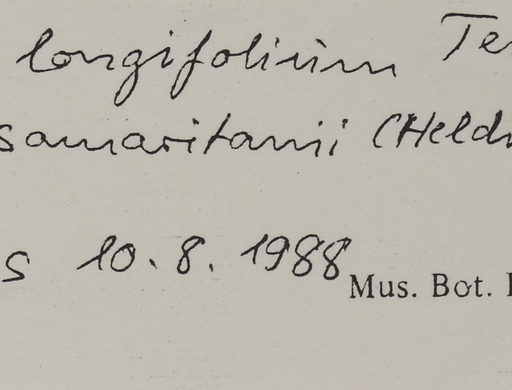 longifolium Te
samaritanii (Held
s 10. 8. 1988
Mus. Bot.